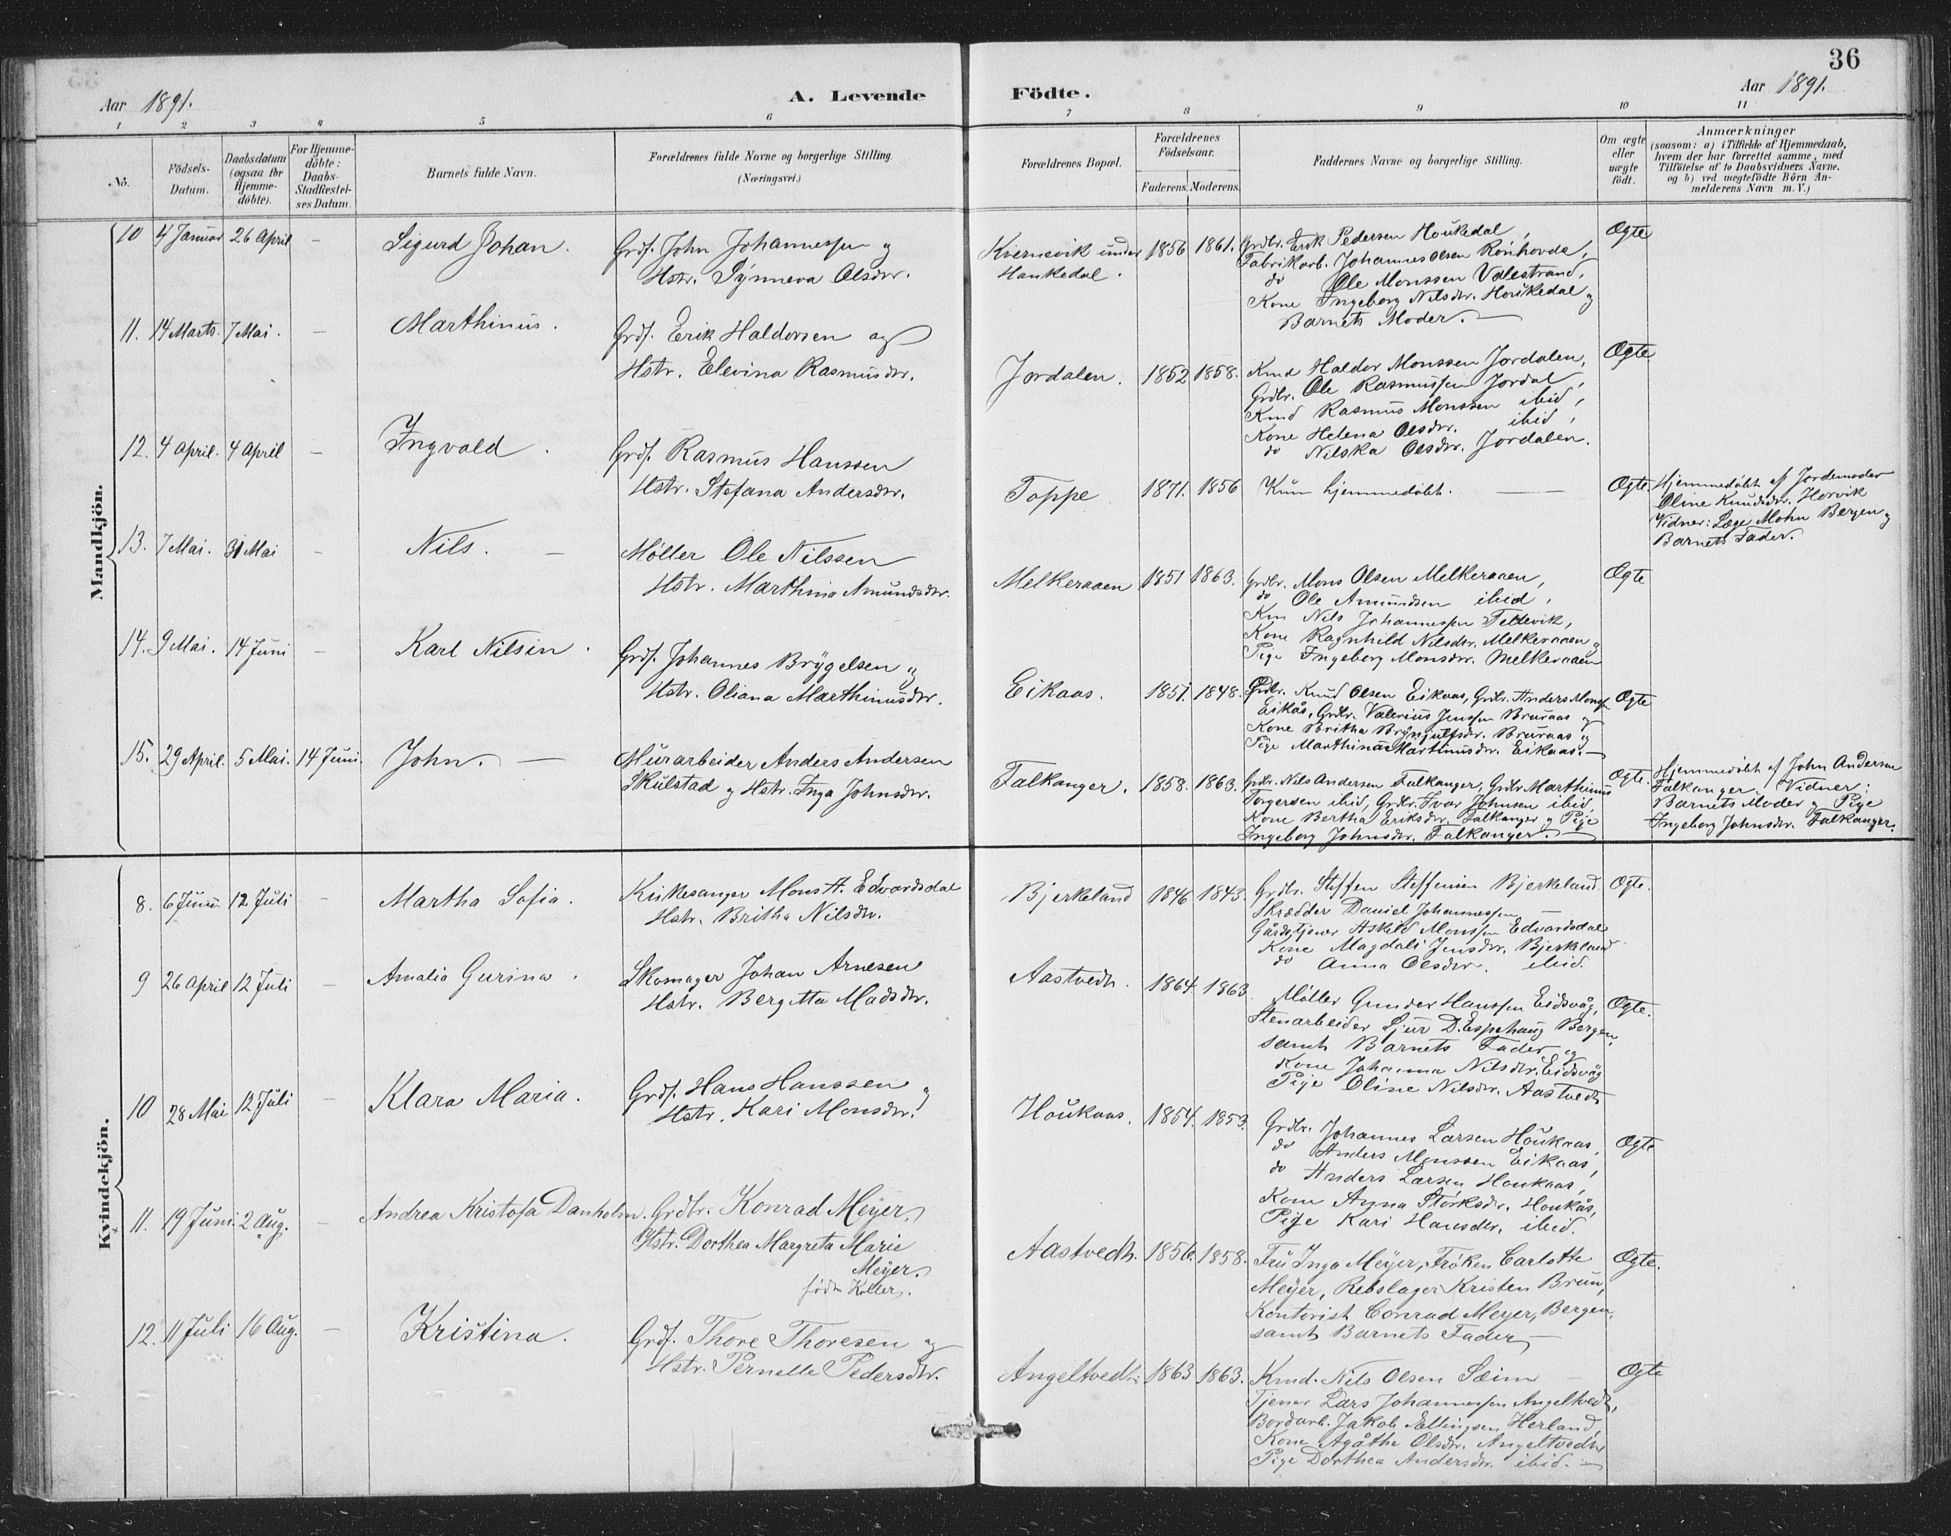 36
Aar 1891. A. Levende Födte. Aar 1891.
1 2 3 4 5 6 7 8 9 10 11
No. Födsels-Datum. Daabsdatum (ogsaa for Hjemme-döbte). For Hjemme-döbte: Daabs-Stadfæstel-ses Datum. Barnets fulde Navn. Forældrenes fulde Navne og borgerlige Stilling. (Næringsvei.) Forældrenes Bopæl. Forældrenes Födselsaar. Faderens. Moderens. Faddernes Navne og borgerlige Stilling. Om ægte eller uægte födt. Anmærkninger (saasom: a) i Tilfælde af Hjemmedaab, hvem der har forrettet samme, med Tilföielse af to Daabsvidners Navne, og b) ved uægtefödte Börn An-melderens Navn m. V.)
Mandkjön.
10 4 Januar 26 April – Sigurd Johan. Grdf. John Johannessen og
Hstr. Synneva Olsdtr.
Kvernevik under
Haukedal.
1856 1861. Grdbr. Erik Pedersen Houkedal,
Fabrikarb. Johannes Olsen Rönhovde,
do Ole Monssen Valestrand,
Kone Ingeborg Nilsdtr. Houkedal og
Barnets Moder. –
Ægte
11. 14 Marts. 7 Mai. – Marthinus. Grdf. Erik Haldorsen og
Hstr. Elevina Rasmusdtr.
Jordalen. 1852 1858. Kmd Haldor Monssen Jordalen,
Grdbr. Ole Rasmussen Jordal,
Kmd Rasmus Monssen ibid,
Kone Helena Olsdtr. ibid,
do Nilska Olsdtr. Jordalen.
Ægte
12. 4 April. 4 April – Ingvald. Grdf. Rasmus Hanssen
Hstr. Stefana Andersdtr.
Toppe 1871. 1856 Kun hjemmedöbt. – Ægte. Hjemmedöbt af Jordemoder
Oline Knudsdtr. Horvik
Vidner: Læge Mohn Bergen og
Barnets Fader.
13. 7 Mai. 31 Mai – Nils. – Møller Ole Nilssen
Hstr. Marthina Amundsdtr.
Melkeraaen 1851 1863. Grdbr. Mons Olsen Melkeraaen,
do Ole Amundsen ibid,
Km Nils Johannessen Tellevik,
Kone Ragnhild Nilsdtr. Melkeraaen og
Pige Ingeborg Monsdtr. Melkeraaen
Ægte
14. 9 Mai. 14 Juni – Karl Nilsin. Grdf. Johannes Brygelsen og
Hstr. Oliana Marthinusdtr.
Eikaas. 1851. 1848. Grdbr. Knud Olsen Eikaas, Grdbr. Anders Monss.
Eikås, Grdbr. Valerius Jenssen Bruraas og
Kone Britha Brynjulfsdtr. Bruraas og
Pige Marthina Martinusdtr. Eikaas. –
Ægte
15. 29 April. 5 Mai. 14 Juni. John. – Murarbeider Anders Andersen
Skulstad og Hstr. Inga Johnsdtr.
Falkanger. 1858. 1863. Grdbr. Nils Andersen Falkanger, Grdbr Marthinus
Torgersen ibid, Grdbr. Ivar Johnsen ibid,
Kone Bertha Eriksdtr. Falkanger og Pige
Ingeborg Johnsdtr. Falkanger. –
Ægte. Hjemmedöbt af John Andersen
Falkanger. Vidner:
Barnets Moder og Pige
Ingeborg Johnsdtr. Falkanger.
Kvindekjön.
8. 6 Juni. 12 Juli – Martha Sofia. Kirkesanger Mons A. Edvardsdal
Hstr. Britha Nilsdtr.
Bjerkeland 1846 1843. Grdbr. Steffen Steffensen Bjerkeland
Skrædder Daniel Johannessen
Gårdstjener Askild Monssen Edvardsdal
Kone Magdali Jensdtr. Bjerkeland
do Anna Olsdtr. ibid.
Ægte.
9 26 April 12 Juli – Amalia Gurina. Skomager Johan Arnesen
Hstr. Bergitta Madsdtr.
Aastvedt. 1864 1863. Møller Gunder Hanssen Eidsvåg,
Stenarbeider Sjur D. Espehaug Bergen,
samt Barnets Fader og
Kone Johanna Nilsdtr. Eidsvåg
Pige Oline Nilsdtr. Aastvedt
Ægte.
10 28 Mai 12 Juli – Klara Maria. Grdf. Hans Hanssen og
Hstr. Kari Monsdtr.
Houkaas. 1854. 1853. Grdbr. Johannes Larsen Houkaas,
do Anders Monssen Eikaas,
do Anders Larsen Houkaas,
Kone Agna Størksdtr. Houkås,
Pige Kari Hansdtr. ibid.
Ægte
11. 19 Juni. 2 Aug. – Andrea Kristofa Danholm. Grdbr. Konrad Meyer,
Hstr. Dorthea Margreta Marie
Meyer,
født Koller.
Aastvedt. 1856. 1858. Fru Inga Meyer, Frøken Carlotte
Meyer, Rebslager Kristen Brun,
Kontorist Conrad Meyer, Bergen,
samt Barnets Fader –
Ægte.
12. 11 Juli 16 Aug. – Kristina. Grdf. Thore Thoresen og
Hstr. Pernelle Pedersdtr.
Angeltvedt. 1863 1863. Kmd. Nils Olsen Sæim –
Tjener Lars Johannessen Angeltvedt,
Bordarb. Jakob Ellingsen Herland,
Kone Agåthe Olsdtr. Angeltvedt,
Pige Dorthea Andersdtr. ibid. –
Ægte